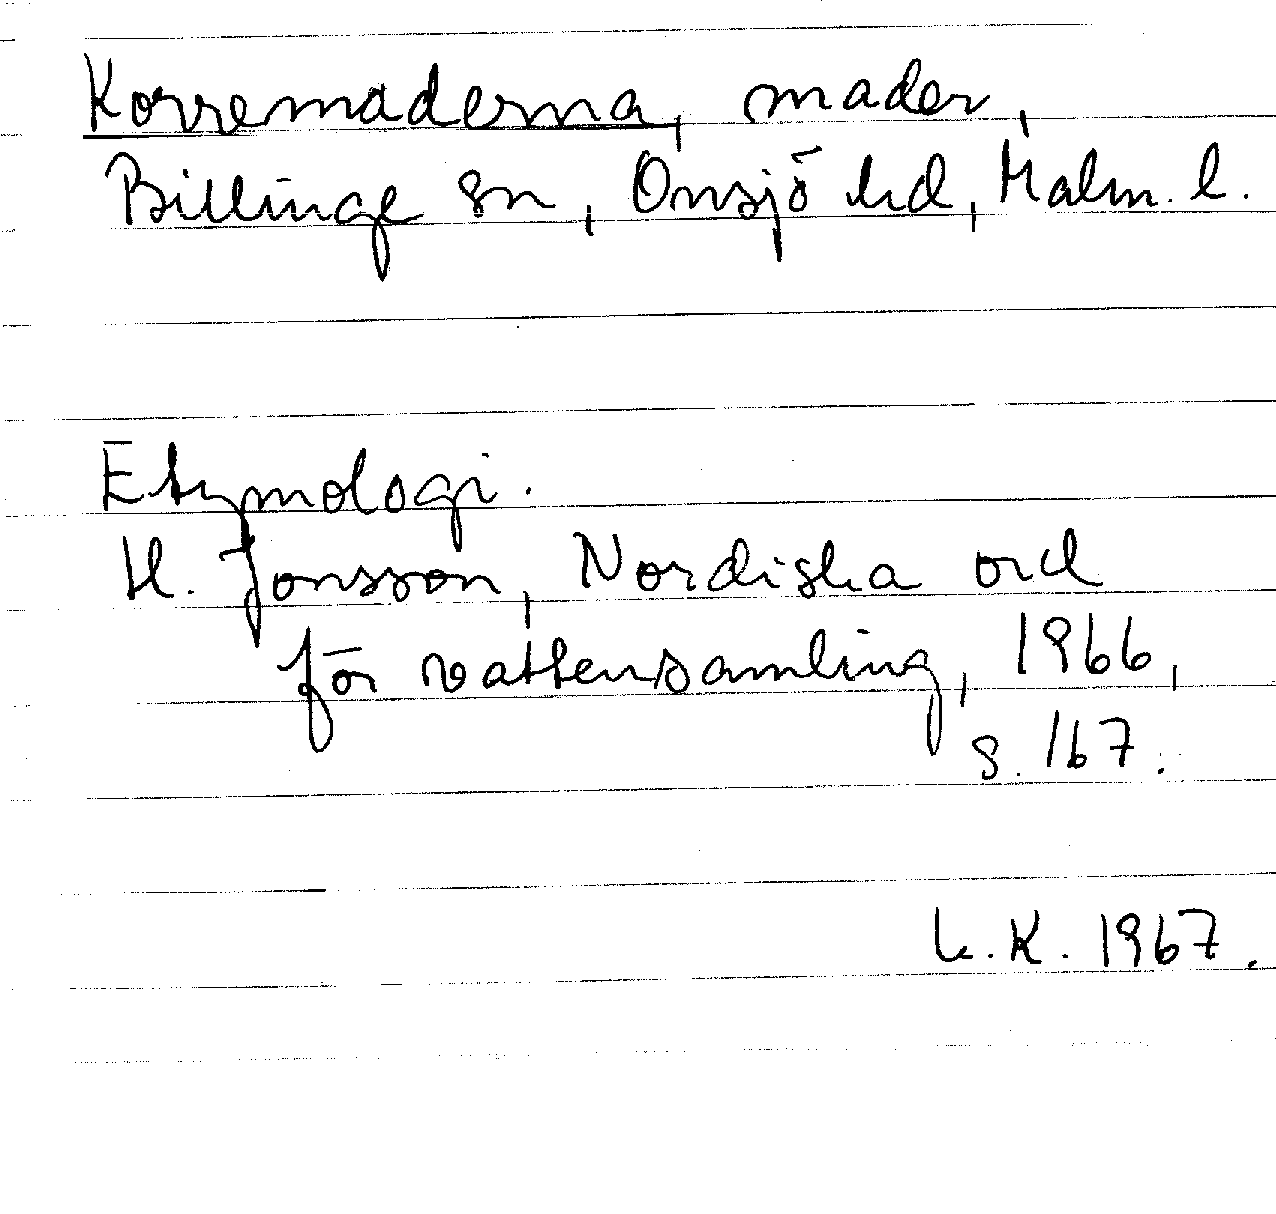 Korremaderna, mader,
Billinge sn, Onsjö hd, Malm. l.
Etymologi.
H. Jonsson, Nordiska ord
för vattensamling, 1966,
s. 167.
L.K. 1967.